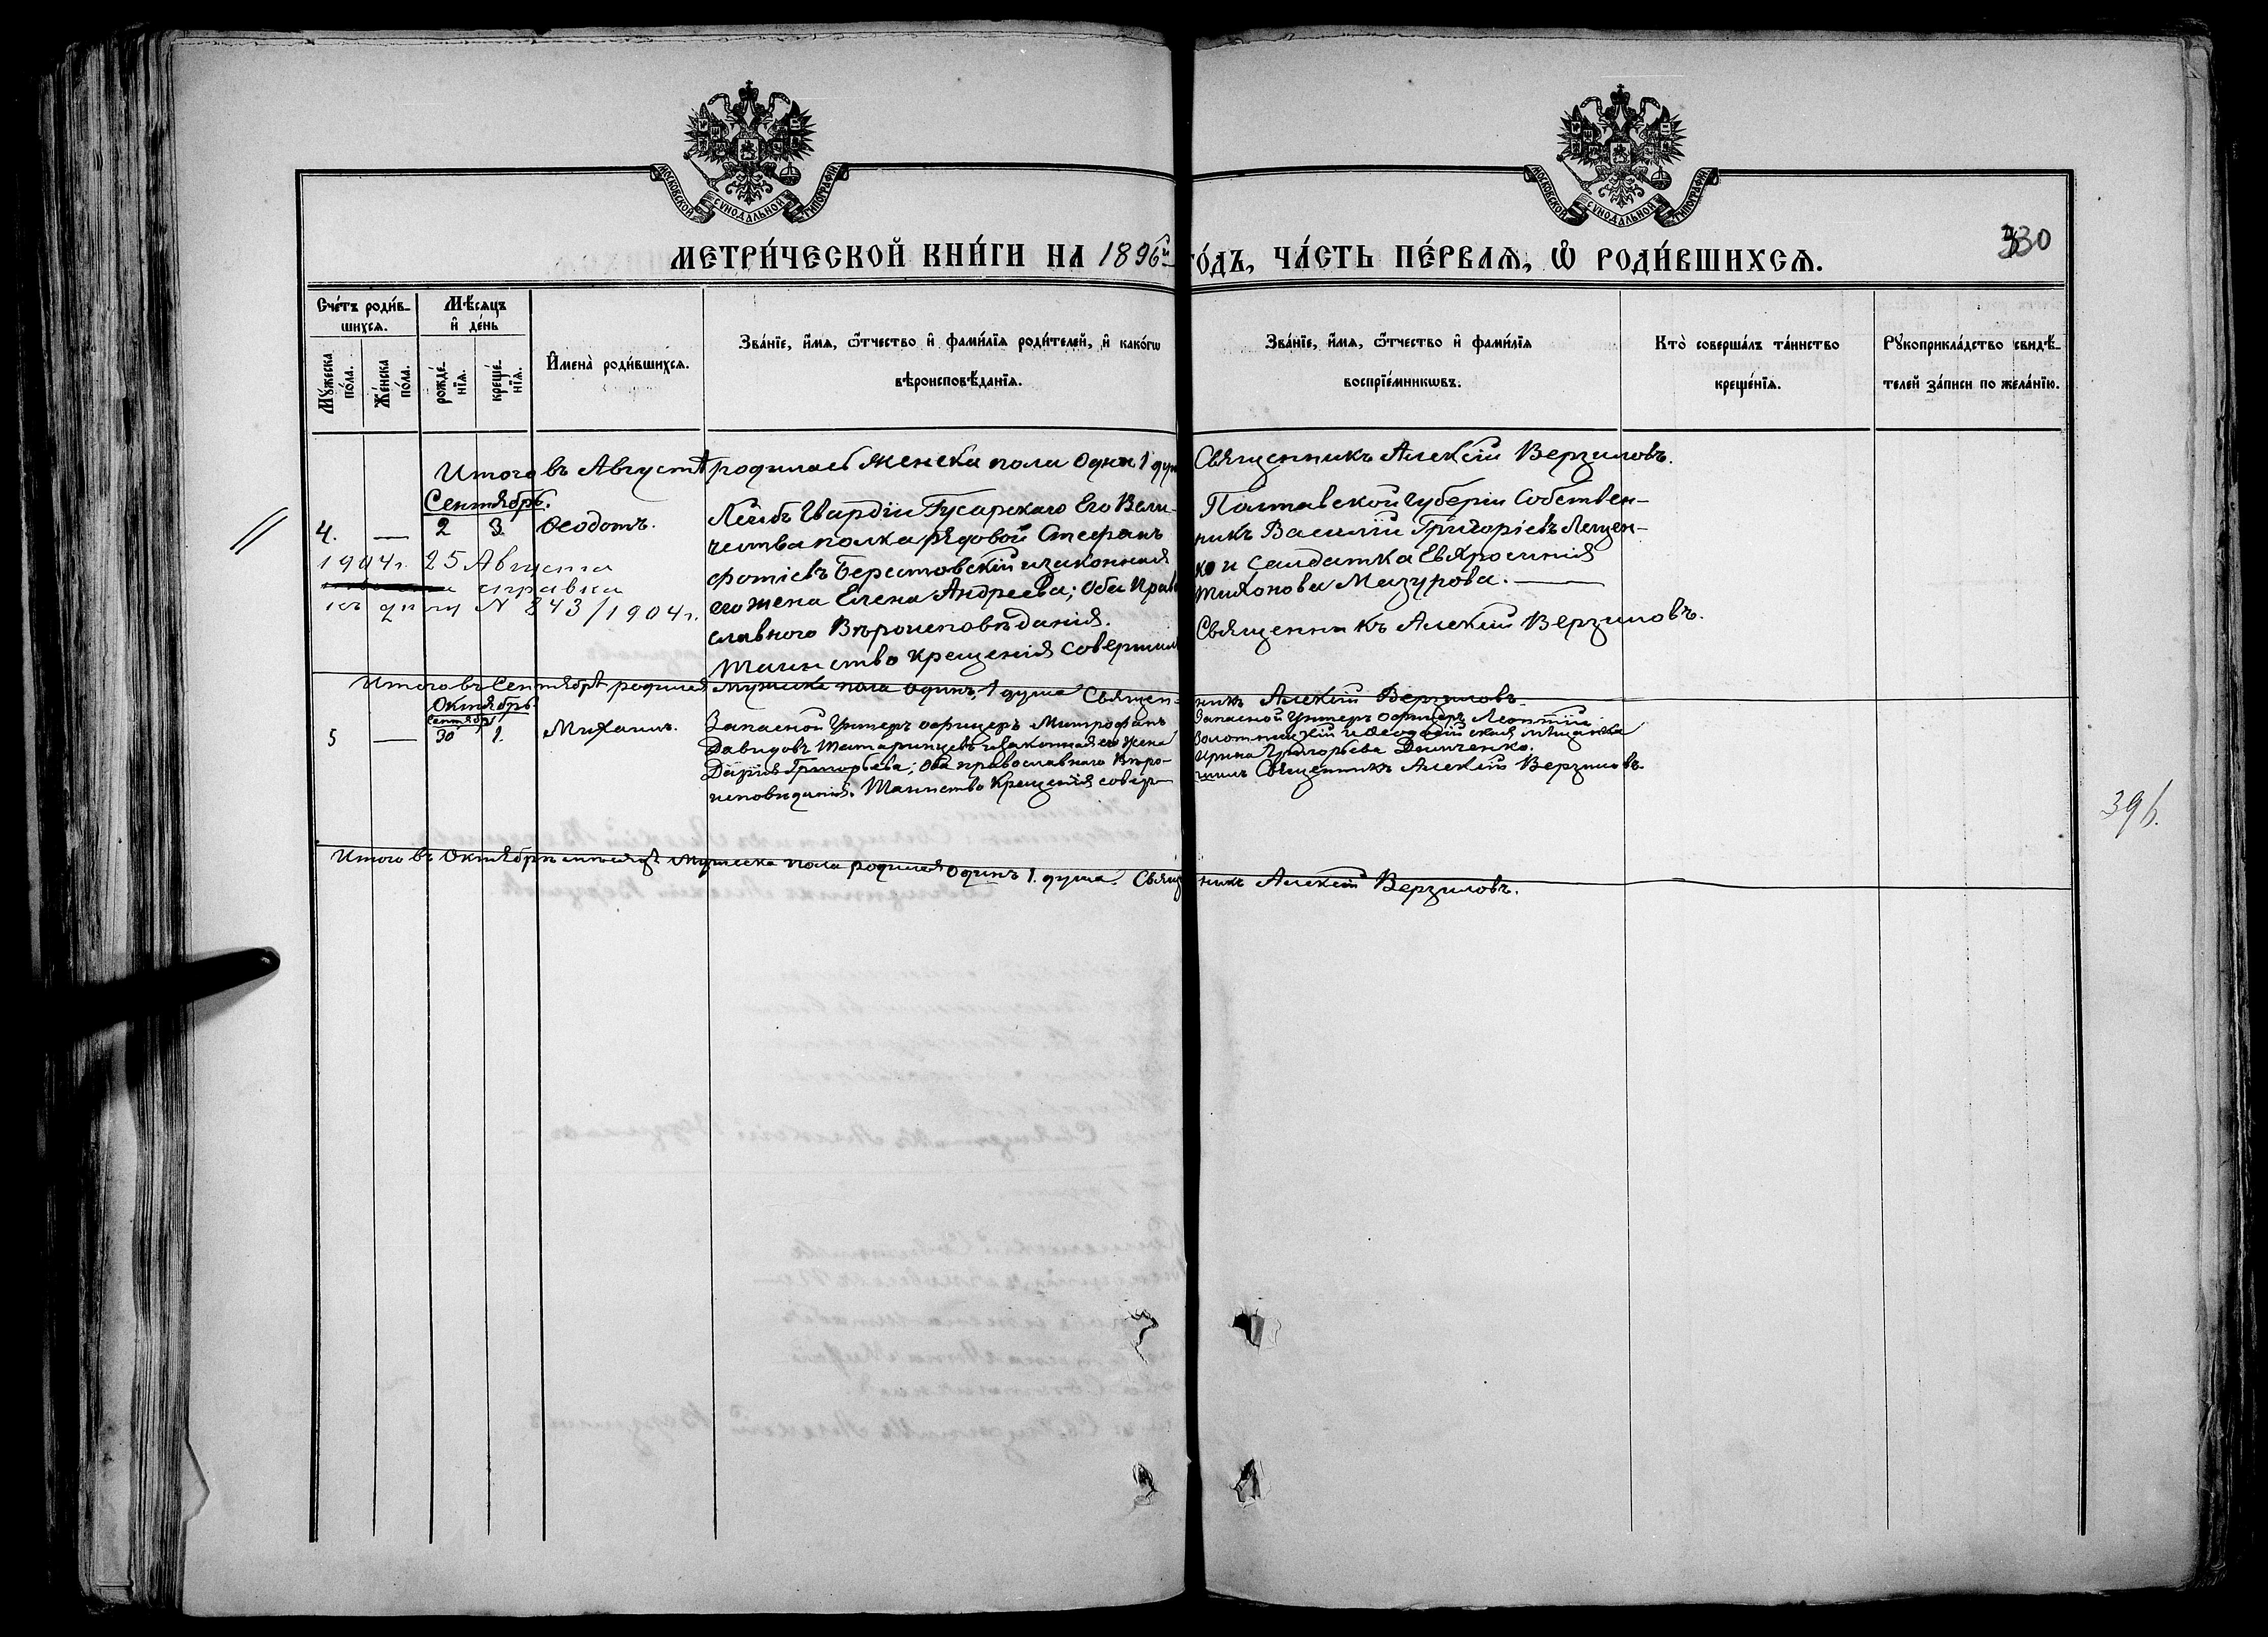 МОСКОВСКОЙ СѴНОДАЛЬНОЙ ТИПОГРАФІИ
МОСКОВСКОЙ СѴНОДАЛЬНОЙ ТИПОГРАФІИ
330
МЕТРИ́ЧЕСКОЙ КНИ́ГИ НА 1896й ГО́ДЪ, ЧА́СТЬ ПЕ́РВАѦ, Ѽ РОДИ́ВШИХСѦ.
Сче́тъ роди́в-
шихсѧ.
Мꙋжеска по́ла.
Же́нска по́ла.
Мѣ́сѧцъ
и҆ де́нь
рожде́нїѧ.
креще́нїѧ.
И҆мена̀ роди́вшихсѧ.
Зва́нїе, и҆́мѧ, ѻ҆́тчество и҆ фами́лїѧ роди́телей, и҆ како́гѡ
вѣроисповѣ́данїѧ.
Зва́нїе, и҆́мѧ, ѻ҆́тчество и҆ фами́лїѧ
воспрїе́мникѡвъ.
Кто̀ соверша́лъ та́инство
креще́нїѧ.
Рꙋкоприкла́дство свидѣ́-
телей за́писи по жела́нїю.
Итого въ Августѣ родилась женска пола одна 1 душ Священникъ Алексій Верзиловъ.
Сентябрь.
4. — 2 3 Ѳеодотъ.
Лейбъ Гвардіи Гусарскаго Его Вели-
чества полка рядовой Стефанъ
Фотіевъ Берестовскій и законная
его жена Елена Андреева; оба Прав
славнаго Вѣроисповѣданія.
Таинство крещенія совершил
Полтавской губерніи Собствен-
никъ Василій Григоріевъ Лещен-
ко и Салдатка Евфросинія
Тихонова Мазурова.
Священникъ Алексій Верзиловъ.
1904г. 25 Августа
справка
къ дѣлу N 843/1904г.
Итого въ Сентябрѣ родился мужеска пола одинъ, 1 душа Священникъ Алексій Верзиловъ.
Октябрь
Сентябр
5 — 30 1. Михаилъ.
Запасной Унтеръ офицеръ Митрофанъ
Давидовъ Татаринцевъ и законная его жена
Дарія Григорьева; оба православнаго Вѣро-
исповѣданія. Таинство Крещенія совер-
Запасной Унтеръ офицеръ Леонтій
Золотницкій и Ѳеодосійская мѣщанка
Ирина Григорьева Демченко.
шилъ Священникъ Алексій Верзиловъ.
396.
Итого въ Октябрѣ мѣсяцѣ мужеска пола родился одинъ 1. душа. Священникъ Алексій Верзиловъ.